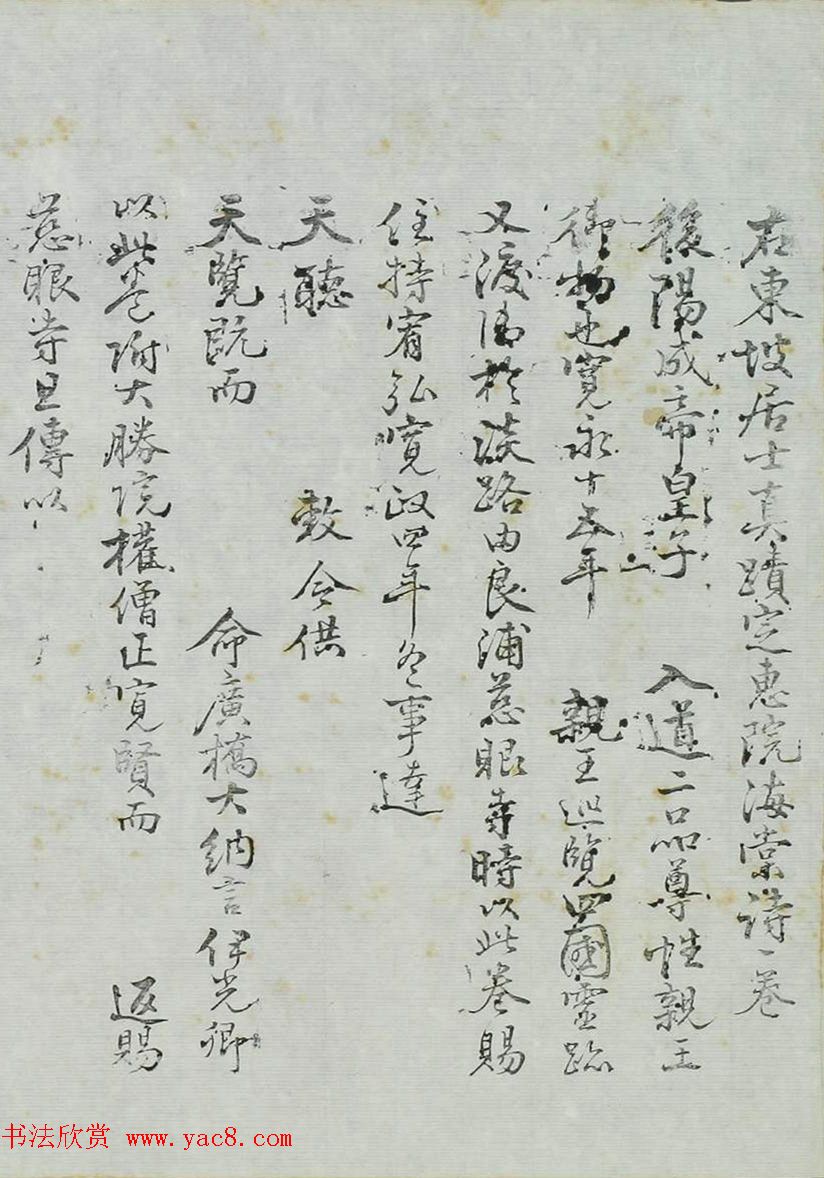 右東坡居士真蹟定惠院海棠詩一卷
後陽成帝皇子 入道二品尊性親王
御物也寬永十五年 親王巡覽四國靈跡
又渡海於淡路由良浦慈眼寺時以此卷賜
住持宥弘寬政四年冬事達
天聽 敕令供
天覽既而 命廣橋大納言伊光卿
以此卷附大勝院權僧正寬賢而 返賜
慈眼寺且傳以
书法欣赏 www.yac8.com